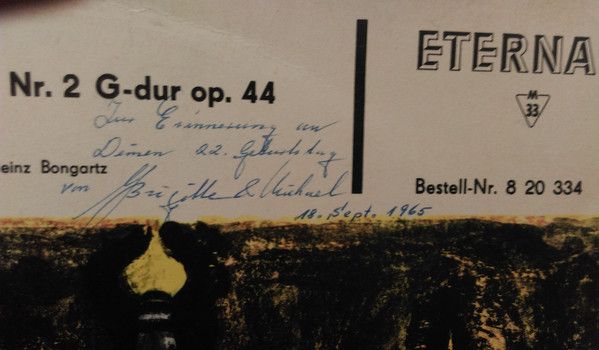 ETERNA
M
33
Nr. 2 G-dur op. 44
Zur Erinnerung an
Deinen 22. Geburtstag
einz Bongartz
von Brigitte & Michael
18. Sept. 1965
Bestell-Nr. 8 20 334